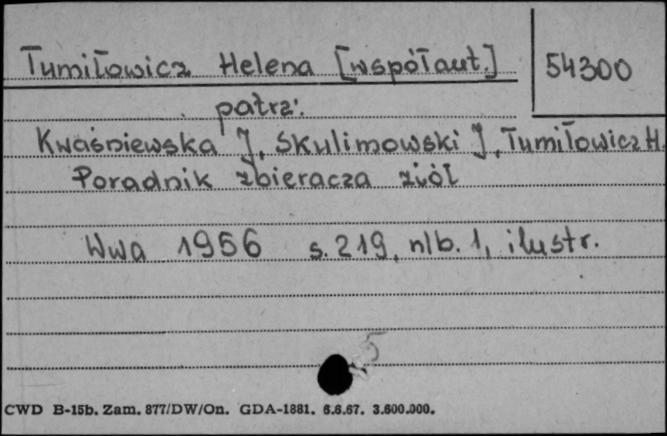 Tumiłowicz Helena [współaut.]
54300
patrz:
Kwaśniewska J, Skulimowski J, Tumiłowicz H.
Poradnik zbieracza ziół
Wwa 1956 s. 219, nlb. 1, ilustr.
5
CWD B-15b. Zam. 877/DW/On. GDA-1881. 6.6.67. 3.600.000.